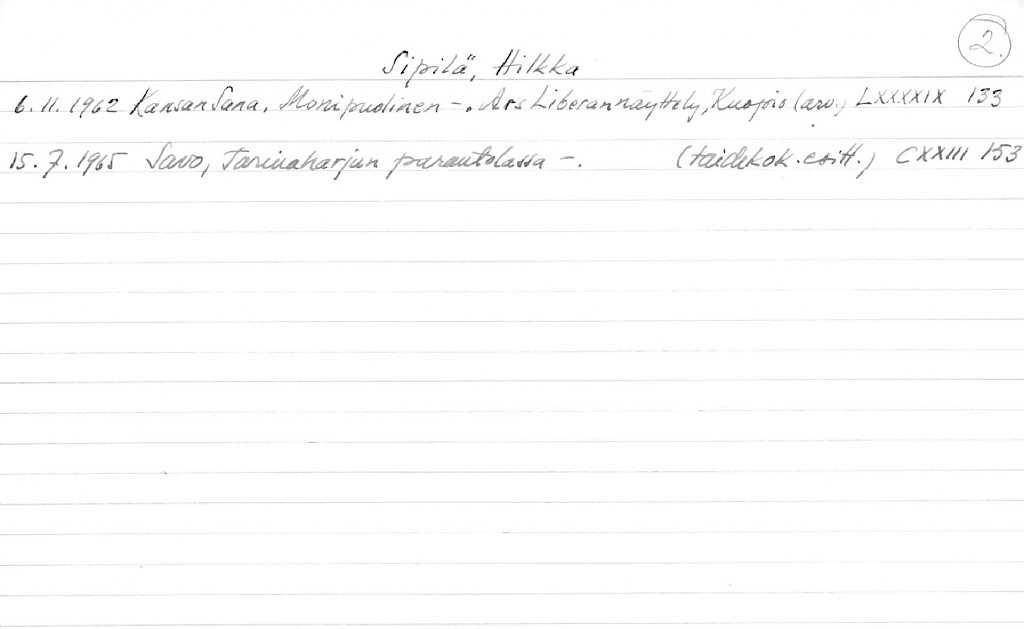 2.
Sipilä, Hilkka
6.11.1962 Kansan Sana, Monipuolinen –. Ars Liberan näyttely, Kuopio (arv.) LXXXXIX 133
15.7.1965 Savo, Tarinaharjun parantolassa –. (taidekok. esitt.) CXXIII 153